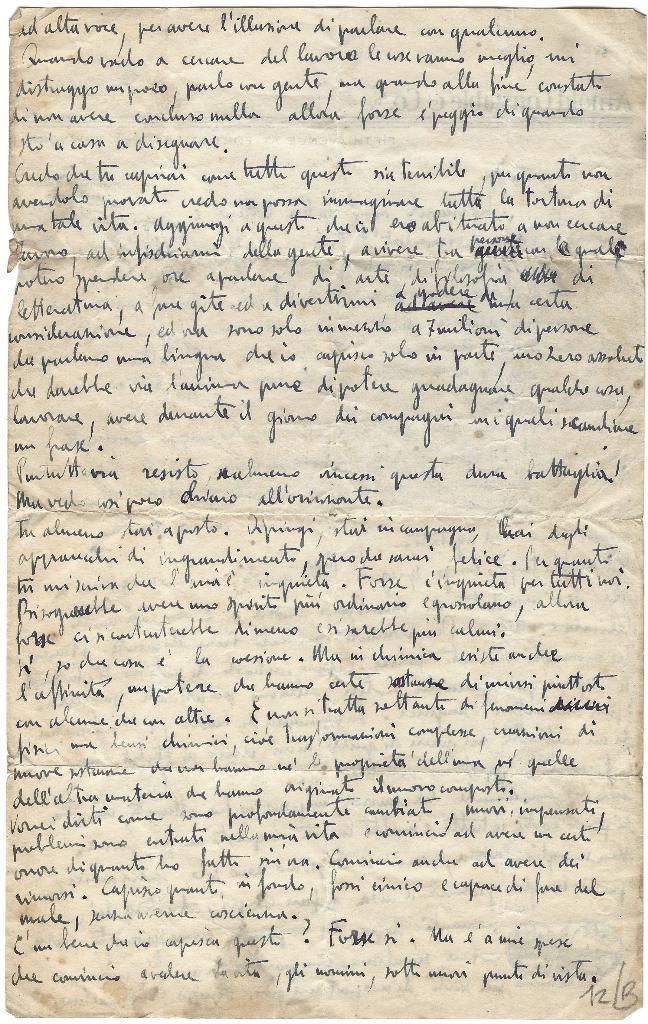 ad alta voce, per avere l'illusione di parlare con qualcuno.
Quando vado a cercare del lavoro le cose vanno meglio, mi
distraggo un poco, parlo con gente, ma quando alla fine constato
di non avere concluso nulla allora forse è peggio di quando
sto a casa a disegnare.
Credo che tu capirai come tutto questo sia terribile, per quanto non
avendolo provato credo non possa immaginare tutta la tortura di
una tale vita. Aggiungi a questo che io ero abituato a non cercare
lavoro ad infischiarmi della gente, a vivere tra persone con le quali
potevo spendere ore a parlare di arte, di filosofia di
letteratura, a fare gite ed a divertirmi a godere di una certa
considerazione, ed ora sono solo in mezzo a 7 milioni di persone
che parlano una lingua che io capisco solo in parte, uno zero assoluto
che darebbe via l'anima pure di potere guadagnare qualche cosa,
lavorare, avere durante il giorno dei compagni con i quali scambiare
un frase.
Per tuttavia resisto, almeno vincessi questa dura battaglia!
Ma vedo così poco chiaro all'orizzonte.
Tu almeno stai a posto. Dipingi, stai in campagna, hai degli
apparecchi di ingrandimento, spero che sarai felice. Per quanto
tu mi scriva che l' inquieta. Forse è inquieta per tutti noi.
Bisognerebbe avere uno spirito più ordinario e grossolano, allora
forse ci si contenterebbe di meno e si sarebbe più calmi.
Sì, so che cosa è la coesione. Ma in chimica esiste anche
l'affinità, un potere che hanno certe sostanze di unirsi piuttosto
con alcune che con altre. E non si tratta soltanto di fenomeni
fisici ma bensì chimici, cioè trasformazioni complesse, creazioni di
nuove sostanze che non hanno né le proprietà dell'una né quelle
dell'altra materia che hanno originato il nuovo composto.
Vorrei dirti come sono profondamente cambiato, nuovi, impensati,
problemi sono entrati nella mia vita e comincio ad avere un certo
orrore di quanto ho fatto sin ora. Comincio anche ad avere dei
rimorsi. Capisco quanto, in fondo, fossi cinico e capace di fare del
male, senza averne coscienza.
E' un bene che io capisca questo? Forse si. Ma è a mie spese
che comincio a vedere la vita, gli uomini, sotto nuovi punti di vista.
12/B